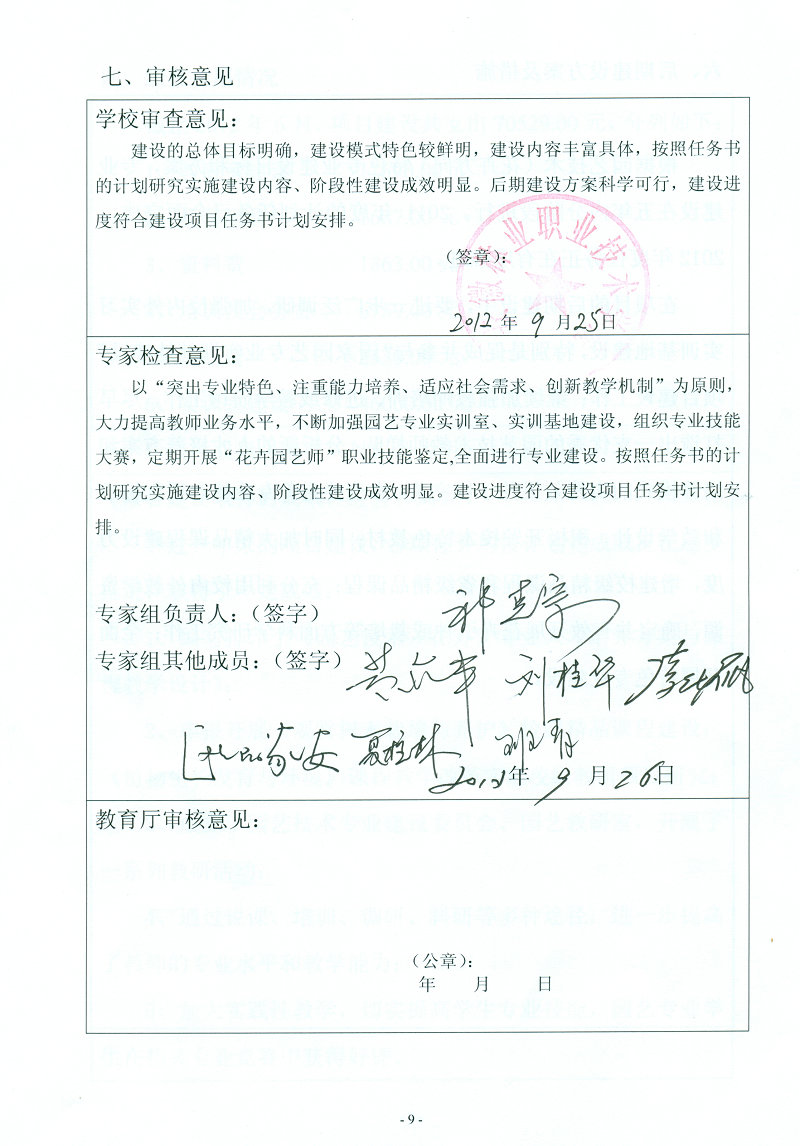 七、审核意见
学校审查意见：
建设的总体目标明确，建设模式特色较鲜明，建设内容丰富具体，按照任务书
的计划研究实施建设内容、阶段性建设成效明显。后期建设方案科学可行，建设进
度符合建设项目任务书计划安排。
业职业技术
（签章）：
2012 年 9 月25日
专家检查意见：
以“突出专业特色、注重能力培养、适应社会需求、创新教学机制”为原则，
大力提高教师业务水平，不断加强园艺专业实训室、实训基地建设，组织专业技能
大赛，定期开展“花卉园艺师”职业技能鉴定,全面进行专业建设。按照任务书的计
划研究实施建设内容、阶段性建设成效明显。建设进度符合建设项目任务书计划安
排。
专家组负责人：（签字）
专家组其他成员：（签字） 刘桂华
2012年 9 月 26日
教育厅审核意见：
（公章）：
年 月 日
- 9 -